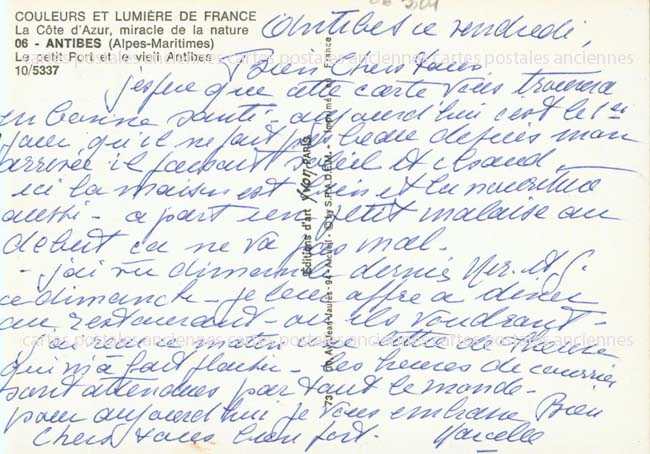 COULEURS ET LUMIÈRE DE FRANCE
La Côte d'Azur, miracle de la nature
06 - ANTIBES (Alpes-Maritimes)
Le petit Port et le vieil Antibes
10/5337
Antibes ce vendredi,
Bien Chers tous,
j'espère que cette carte vous trouvera
en bonne santé - aujourd'hui c'est le 1er
jour qu'il ne fait pas beau depuis mon
arrivée il faisait soleil et chaud.
ici la maison est bien et la nourriture
aussi - a part un petit malaise au
debut ca ne va pas mal.
- j'ai vu dimanche dernier
ce dimanche - je leur offre a diner
au restaurant ou ils voudront -
j'ai eu
qui m'a fait plaisir - les heures de courrier
sont attendues par tout le monde -
pour aujourd'hui je vous embrasse Bien
Chers tous bien fort. Marcelle
Editions d'art Yvon, PARIS
Jean-Jaurès - 94 - Arcueil - © by S.P.A.D.E.M. - Imprimé en France
cartes postales anciennes cartes postales anciennes cartes postales anciennes
cartes postales anciennes cartes postales anciennes cartes postales anciennes